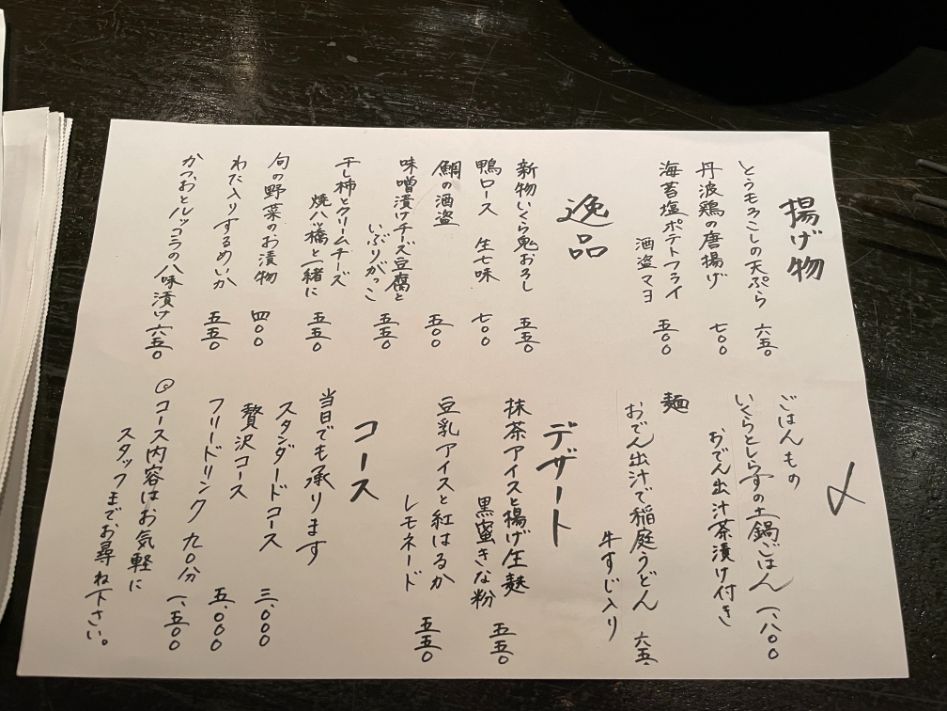 揚げ物
とうもろこしの天ぷら 六五〇
丹波鶏の唐揚げ 七〇〇
海苔塩ポテトフライ
酒盗マヨ 五〇〇
逸品
新物いくら鬼おろし 五五〇
鴨ロース 生七味 七〇〇
鯛の酒盗 五〇〇
味噌漬けチーズ豆腐と
いぶりがっこ 五五〇
干し柿とクリームチーズ
焼八ッ橋と一緒に 五五〇
旬の野菜のお漬物 四〇〇
わた入りするめいか 五五〇
かつおとルッコラの八味漬け 六五〇
〆
ごはんもの
いくらとしらすの土鍋ごはん 一、八〇〇
おでん出汁茶漬け付き
麺
おでん出汁で稲庭うどん 六五、
牛すじ入り
デザート
抹茶アイスと揚げ生麩
黒蜜きな粉 五五〇
豆乳アイスと紅はるか
レモネード 五五〇
コース
当日でも承ります
スタンダードコース 三、〇〇〇
贅沢コース 五、〇〇〇
フリードリンク 九〇分 一、五〇〇
◎コース内容はお気軽に
スタッフまでお尋ね下さい。